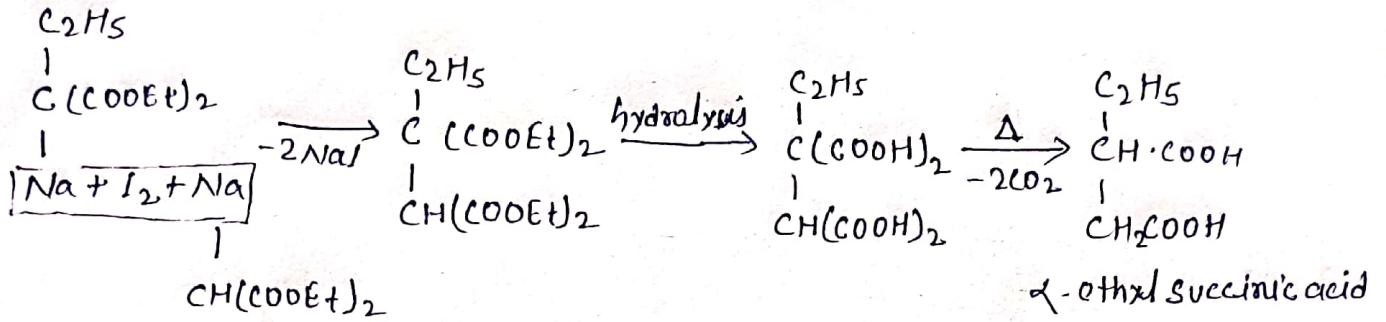 C2H5
C(COOEt)2
Na + I2 + Na
CH(COOEt)2
-2NaI
C2H5
C (COOEt)2
CH(COOEt)2
hydrolysis
C2H5
C(COOH)2
CH(COOH)2
Δ
-2CO2
C2H5
CH·COOH
CH2COOH
α-ethyl succinic acid